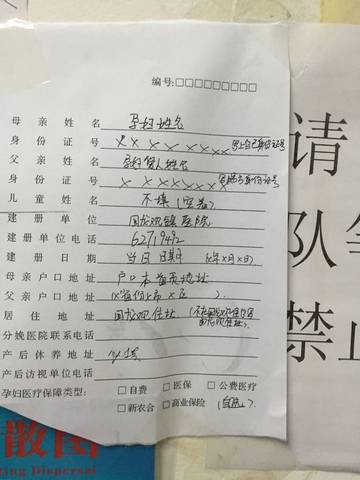 编号:□□□□□□□□□
母亲姓名 孕妇姓名
身份证号 XX XXXX XXXX (写上自己身份证号)
父亲姓名 孕妇爱人姓名
身份证号 XXXXXX XXX
儿童姓名 不填(空着)
建册单位 回龙观镇医院
建册单位电话 62719472
建册日期 当日日期 (X年X月X日)
母亲户口地址 户口本首页地址
父亲户口地址 (X省X市X区)
居住地址 回龙观住址
分娩医院联系电话
产后休养地址
产后访视单位电话
孕妇医疗保障类型: □自费 □医保 □公费医疗
□新农合 □商业保险
请
队
禁止
散图
ting Dispersei